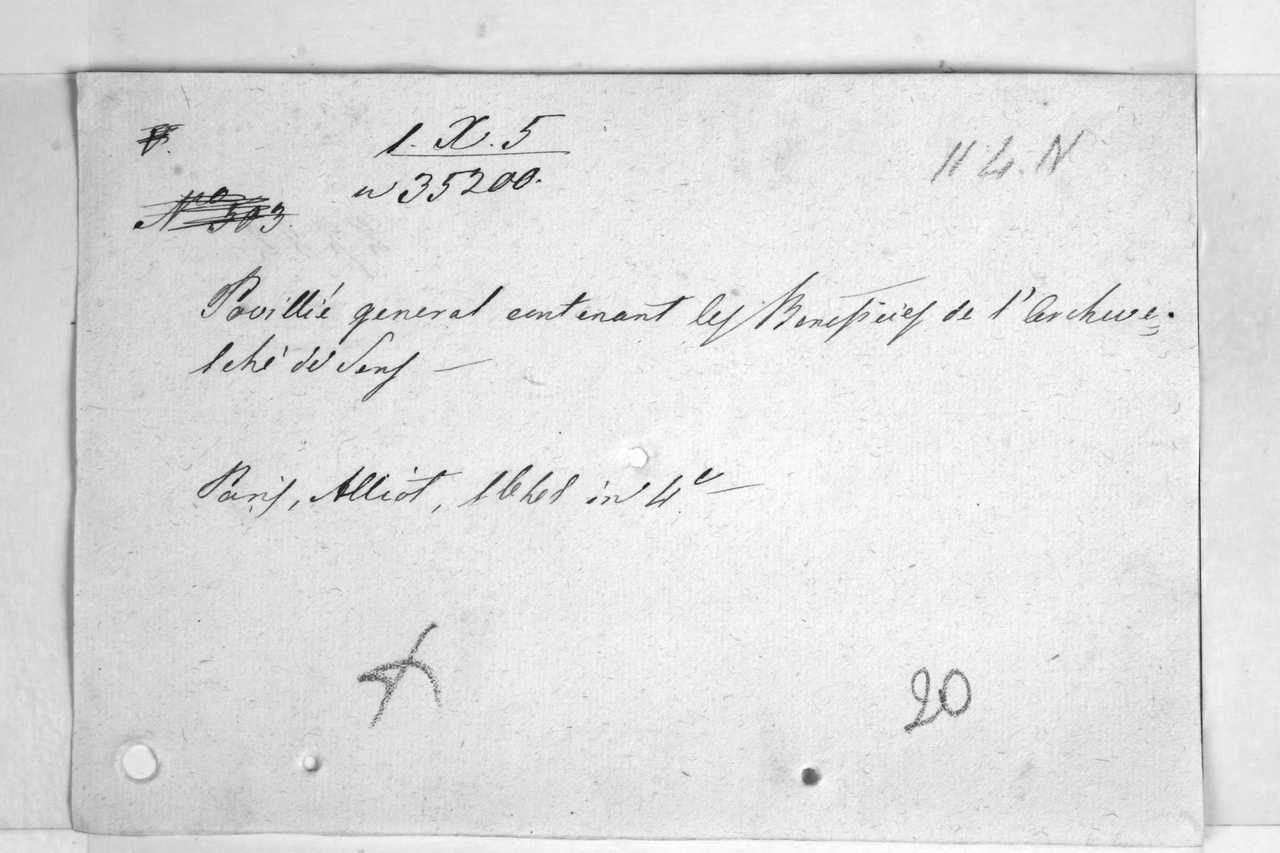 1. X. 5
n 35200.
11 4. N
N° 303.
Pouillié general contenant les Benefices de l'archeve=
sché de Sens —
Paris, Alliot, 1648 in 4° —
20